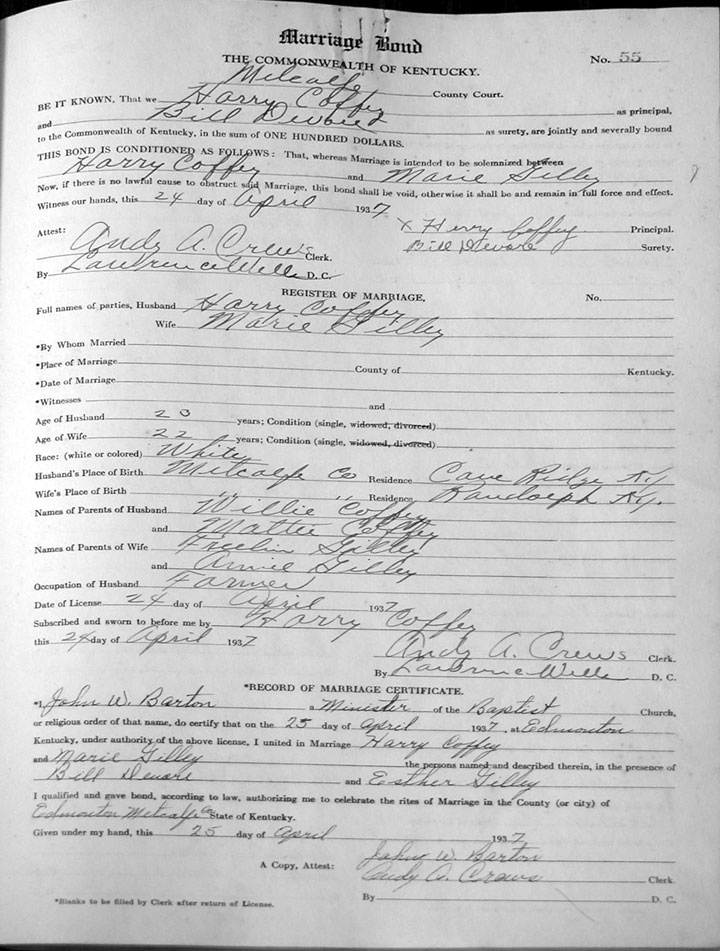 Marriage Bond
No. 55
THE COMMONWEALTH OF KENTUCKY.
Metcalfe County Court.
BE IT KNOWN, That we Harry Coffey as principal,
and Bill Devore as surety, are jointly and severally bound
to the Commonwealth of Kentucky, in the sum of ONE HUNDRED DOLLARS.
THIS BOND IS CONDITIONED AS FOLLOWS: That, whereas Marriage is intended to be solemnized between
Harry Coffey and Marie Gilley
Now, if there is no lawful cause to obstruct said Marriage, this bond shall be void, otherwise it shall be and remain in full force and effect.
Witness our hands, this 24 day of April 1937
X Harry Coffey Principal.
Attest: Bill Devore Surety.
Andy A. Crews Clerk.
By Lawrence Wells D. C.
REGISTER OF MARRIAGE.
Full names of parties, Husband Harry Coffey No.
Wife Marie Gilley
*By Whom Married
*Place of Marriage County of Kentucky.
*Date of Marriage
*Witnesses and
Age of Husband 23 years; Condition (single, widowed, divorced)
Age of Wife 22 years; Condition (single, widowed, divorced)
Race: (white or colored) White
Husband's Place of Birth Metcalfe Co Residence Cave Ridge Ky
Wife's Place of Birth " " Residence Randolph Ky.
Names of Parents of Husband Willie Coffey
and Mattie Coffey
Names of Parents of Wife Gilley
and Annie Gilley
Occupation of Husband Farmer
Date of License 24 day of April 1937
Subscribed and sworn to before me by Harry Coffey
this 24 day of April 1937
Andy A. Crews Clerk.
By Lawrence Wells D. C.
*RECORD OF MARRIAGE CERTIFICATE.
*I, John W. Barton a Minister of the Baptist Church,
or religious order of that name, do certify that on the 25 day of April 1937, at Edmonton
Kentucky, under authority of the above license, I united in Marriage Harry Coffey
and Marie Gilley the persons named and described therein, in the presence of
Bill Devore and Esther Gilley
I qualified and gave bond, according to law, authorizing me to celebrate the rites of Marriage in the County (or city) of
Edmonton Metcalfe Co State of Kentucky.
Given under my hand, this 25 day of April 1937
John W. Barton
A Copy, Attest: Andy A. Crews Clerk
By D. C.
*Blanks to be filed by Clerk after return of License.